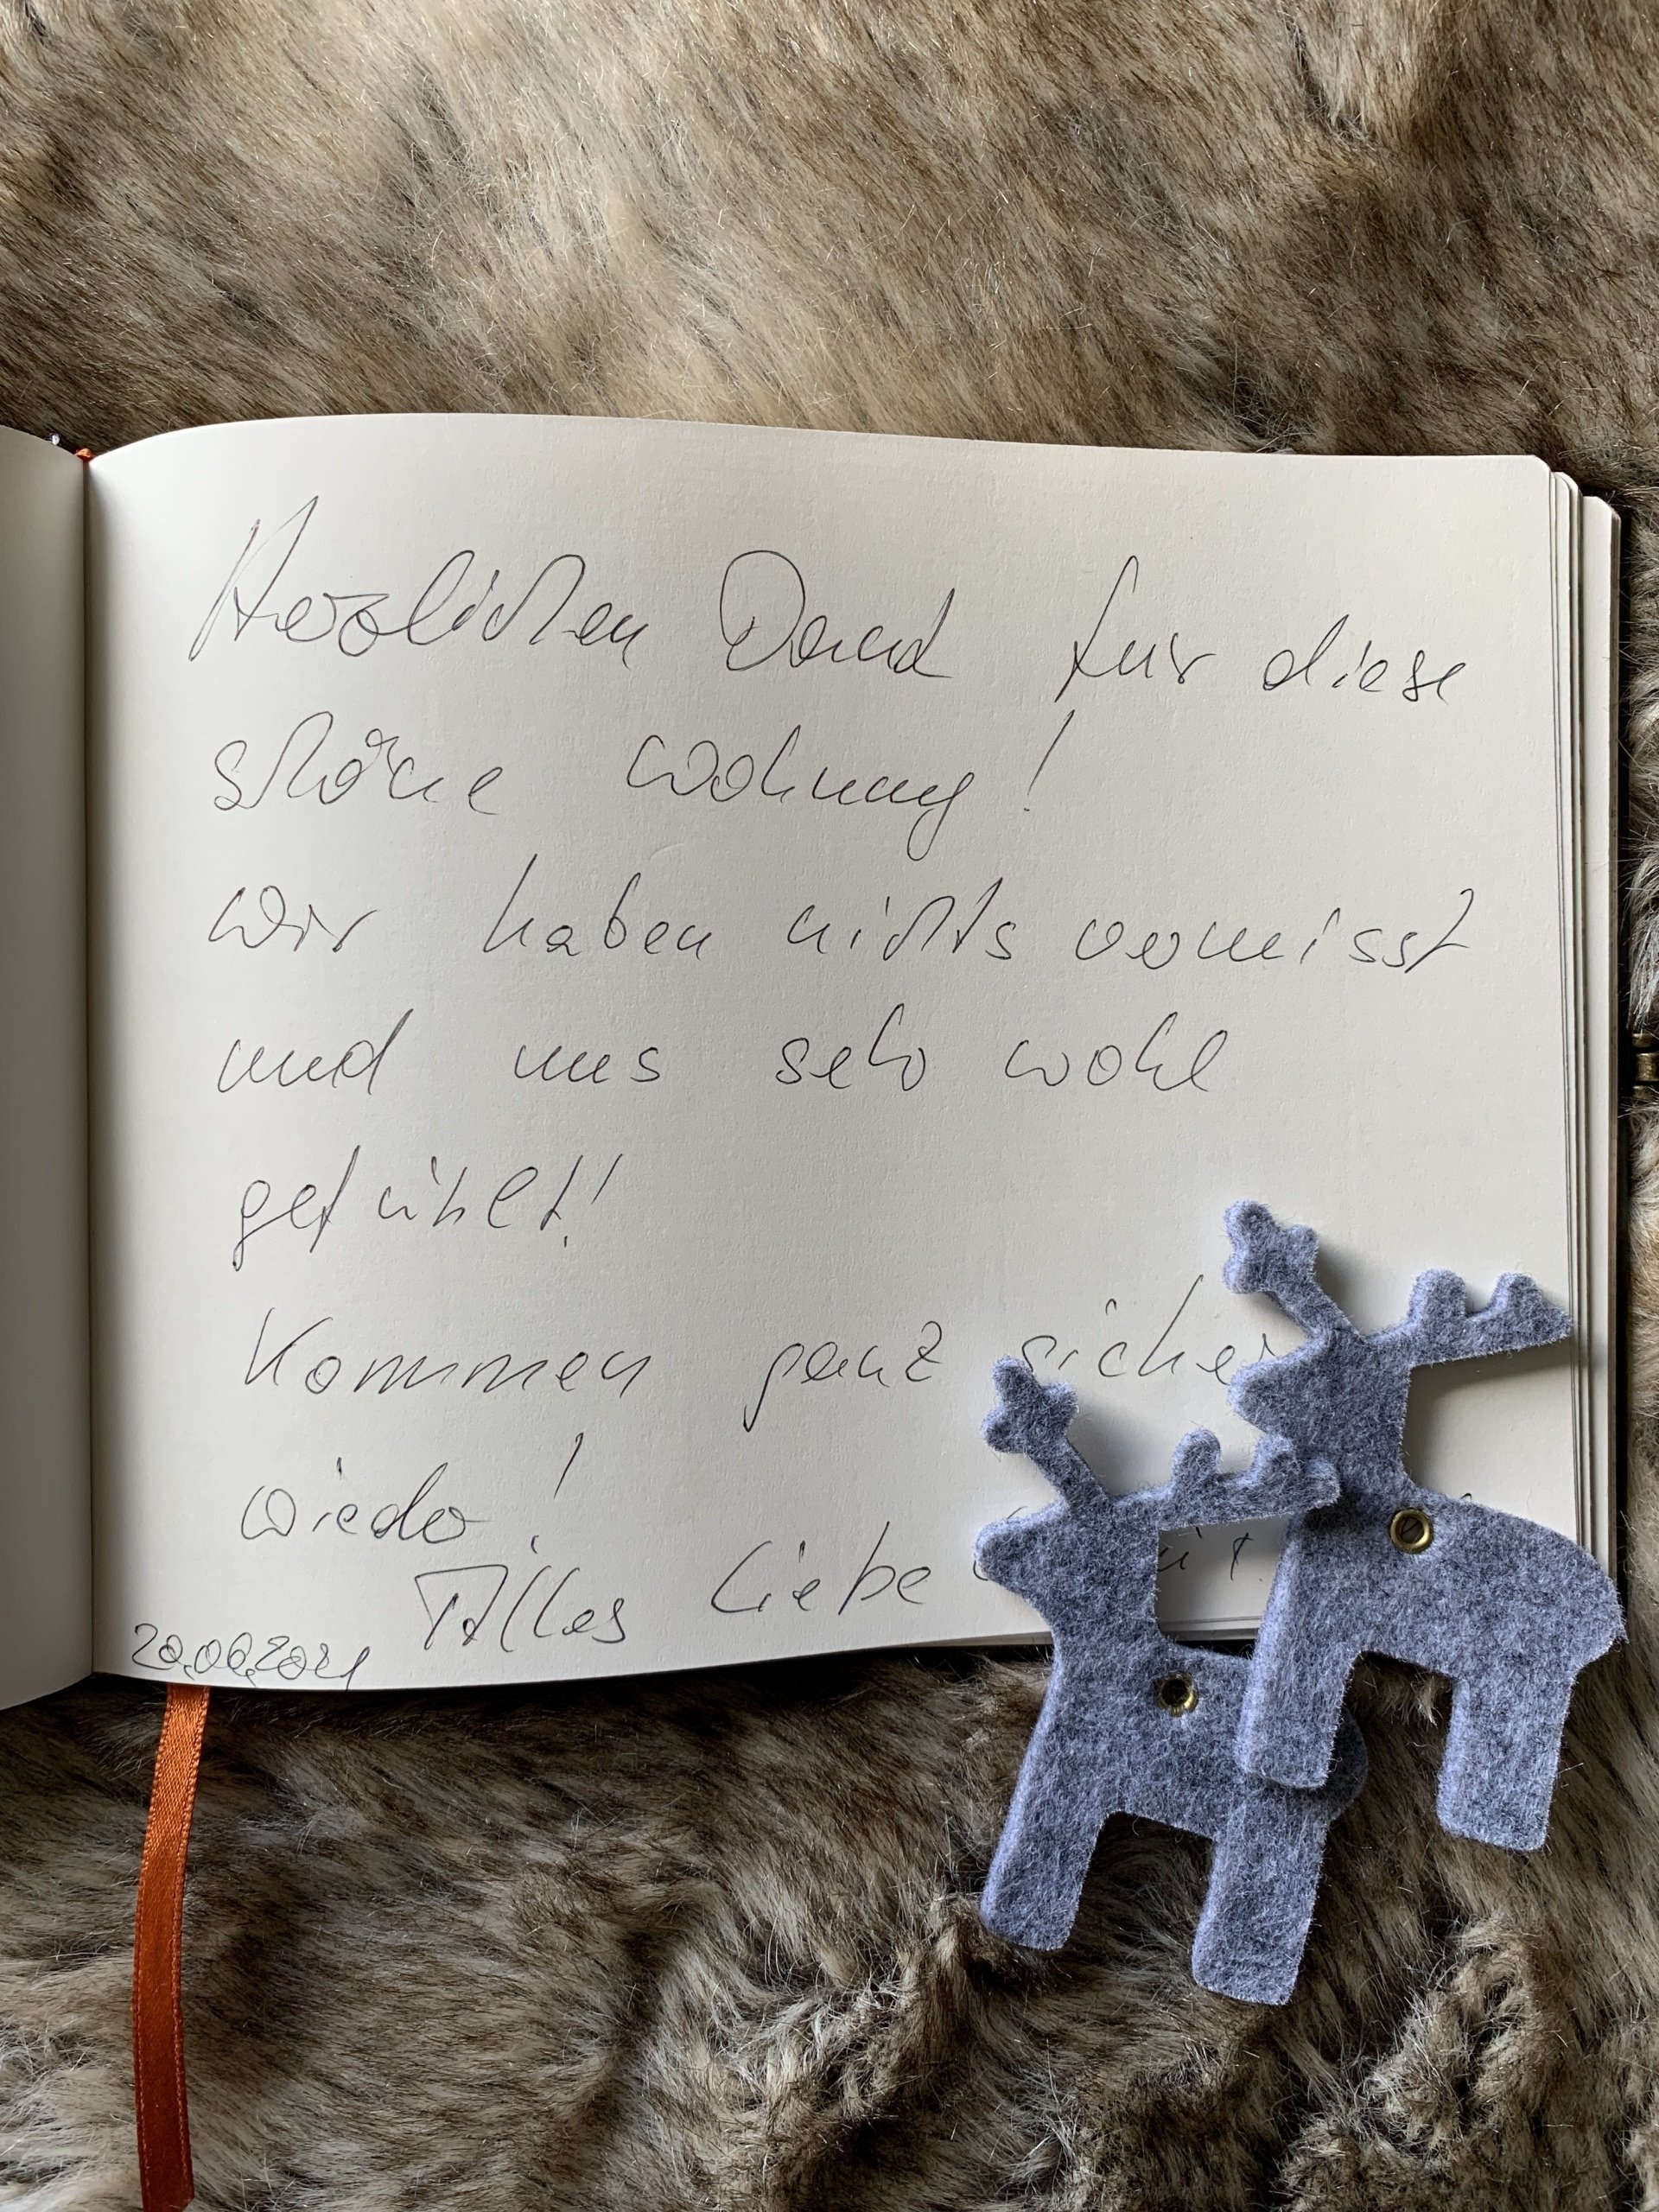 Herzlichen Dank für diese
schöne Wohnung!
Wir haben nichts vermisst
und uns sehr wohl
gefühlt!
Kommen ganz sicher
wieder!
Alles Liebe
20.06.2021